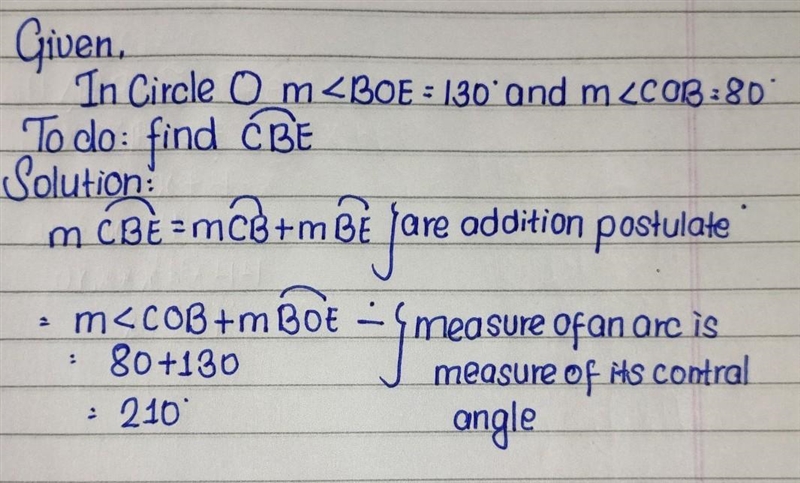 Given,
In Circle O m<BOE = 130° and m<COB = 80°
To do: find C͡BE
Solution:
m C͡BE = mC͡B + m B͡E } are addition postulate
= m<COB + m B͡OE ÷ { measure of an arc is
: 80+130 measure of its contral
= 210° angle